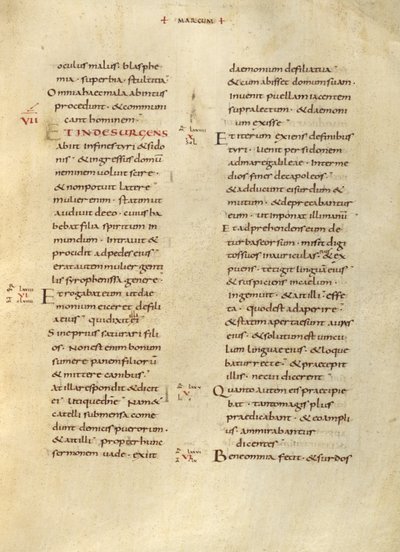 + MARCUM +
oculus malus · blasphe
mia · superbia · stultitia
Omnia haec mala abintus
procedunt · & commun
cant hominem ·
VII
ET INDE SURGENS
abiit in fines tyri & sido
nis · & ingressus domū
neminem voluit scire ·
& non potuit latere
mulier enim · statim ut
audivit de eo · cuius ha
bebat filia spiritum in
mundum · Intravit &
procidit ad pedes eius
erat autem mulier genti
lis syrophinissa genere
Et rogabat eum ut dae
monium eiceret de fili
a eius · qui dixit ei
Sine prius saturari fili
os · Non est enim bonum
sumere panem filiorū
& mittere canibus ·
at illa respondit & dicit
ei · Utique dn̄e · Nam &
catelli sub mensa come
dunt de micis puerorum ·
& ait illi · propter hunc
sermonem vade · exiit
daemonium de filia tua
& cum abisset domum suam ·
invenit puellam iacentem
supra lectum · & daemoni
um exisse ·
Et iterum exiens de finibus
tyri · venit per sidonem
ad mare galileae · inter me
dios fines decapoleos
& adducunt ei surdum &
mutum · & deprecabantur
eum · ut imponat illi manū
Et adprehendens eum de
turba seorsum · misit digi
tos suos in auriculas · & ex
puens · tetigit linguā eius
& suspiciens in caelum ·
ingemuit · & ait illi · effe
ta · quod est adaperire ·
& statim apertae sunt aures
eius · & solutum est vincu
lum linguae eius · & loque
batur recte · & praecepit
illis · ne cui dicerent
Quanto autem eis praecipie
bat · tanto magis plus
praedicabant · & eo ampli
us · ammirabantur
dicentes ·
Bene omnia fecit · & surdos